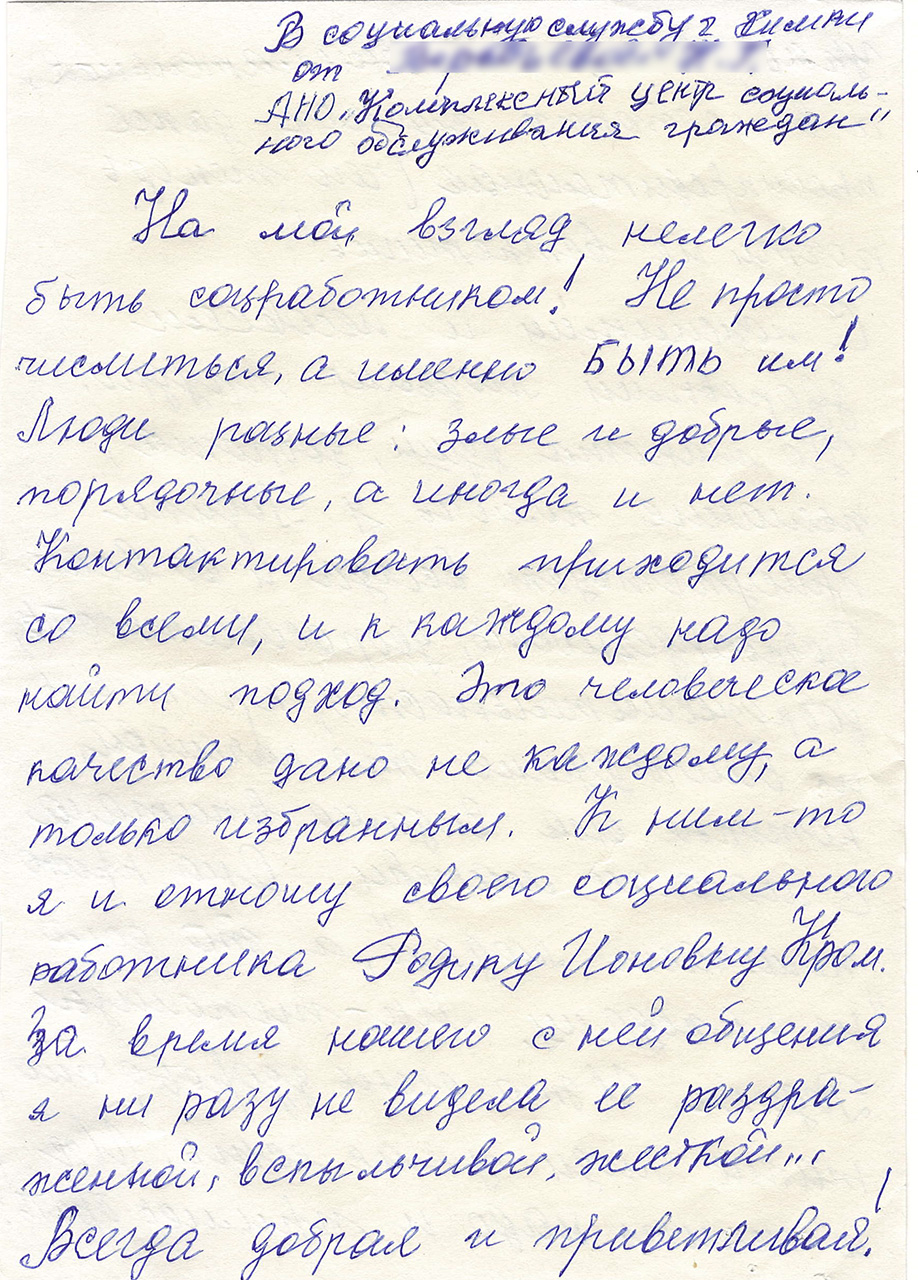 В социальную службу г. Химки
от
АНО „Комплексный центр социаль-
ного обслуживания граждан"
На мой взгляд нелегко
быть соцработником! Не просто
числиться, а именно БЫТЬ им!
Люди разные: злые и добрые,
порядочные, а иногда и нет.
Контактировать приходится
со всеми, и к каждому надо
найти подход. Это человеческое
качество дано не каждому, а
только избранным. К ним-то
я и отношу своего социального
работника Родику Ионовну Кром.
За время нашего с ней общения
я ни разу не видела ее раздра-
женной, вспыльчивой, жесткой...
Всегда добрая и приветливай!